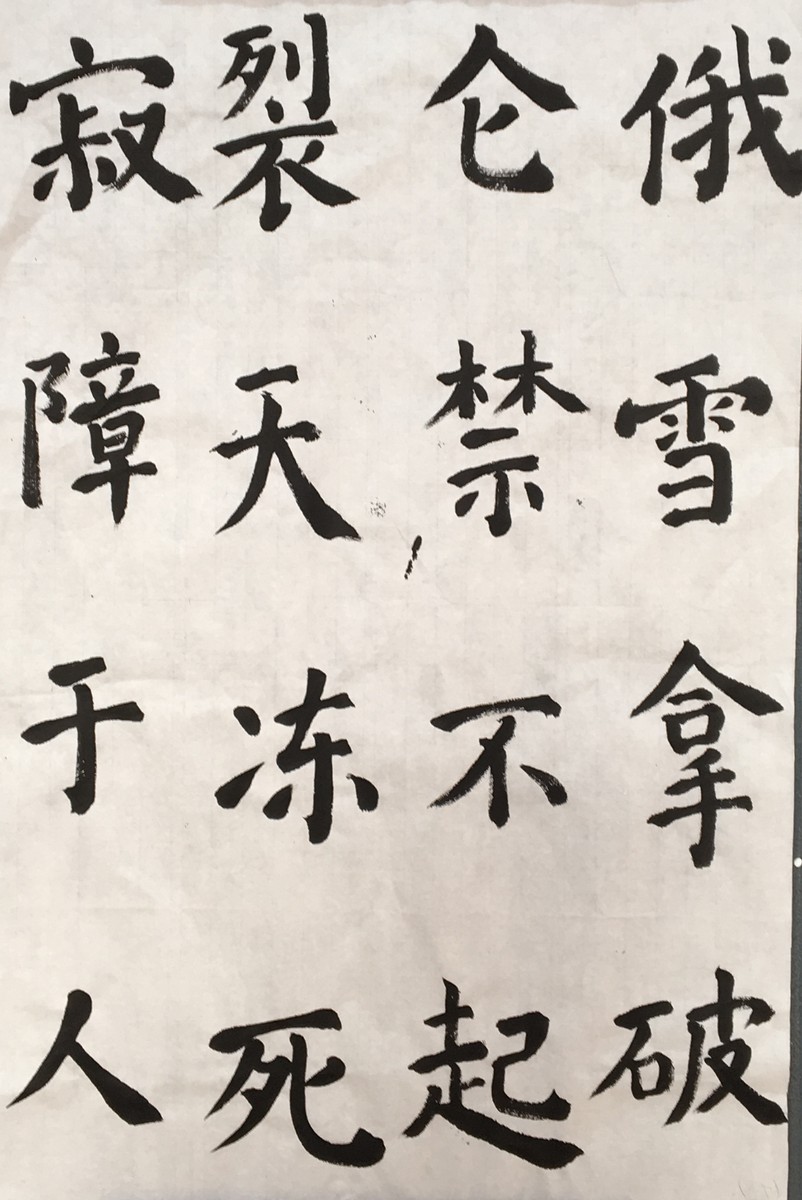 俄雪拿破
仑禁不起
裂天冻死
寂障于人